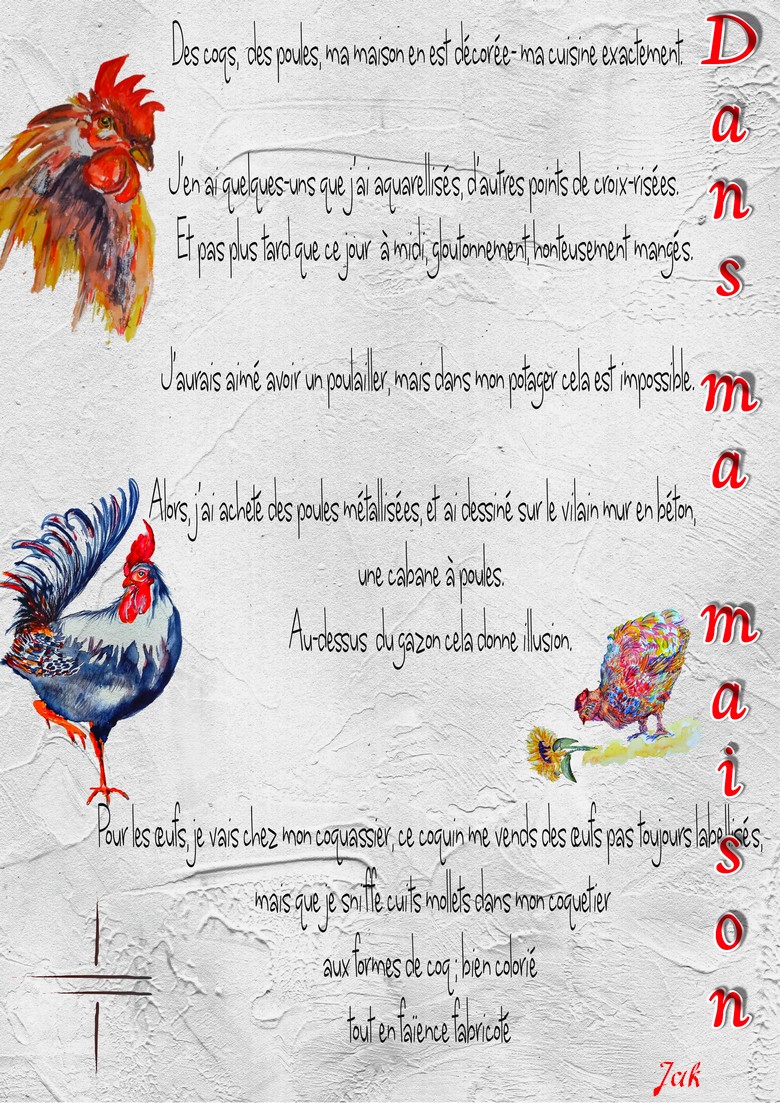 Des coqs, des poules, ma maison en est décorée- ma cuisine exactement.
J'en ai quelques-uns que j'ai aquarellisés, d'autres points de croix-risées.
Et pas plus tard que ce jour à midi, gloutonnement, honteusement mangés.
J'aurais aimé avoir un poulailler, mais dans mon potager cela est impossible.
Alors, j'ai acheté des poules métallisées, et ai dessiné sur le vilain mur en béton,
une cabane à poules.
Au-dessus du gazon cela donne illusion.
Pour les œufs, je vais chez mon coquassier, ce coquin me vends des œufs pas toujours labellisés,
mais que je sniffe cuits mollets dans mon coquetier
aux formes de coq ; bien colorié
tout en faïence fabricoté
Dans ma maison
Jak